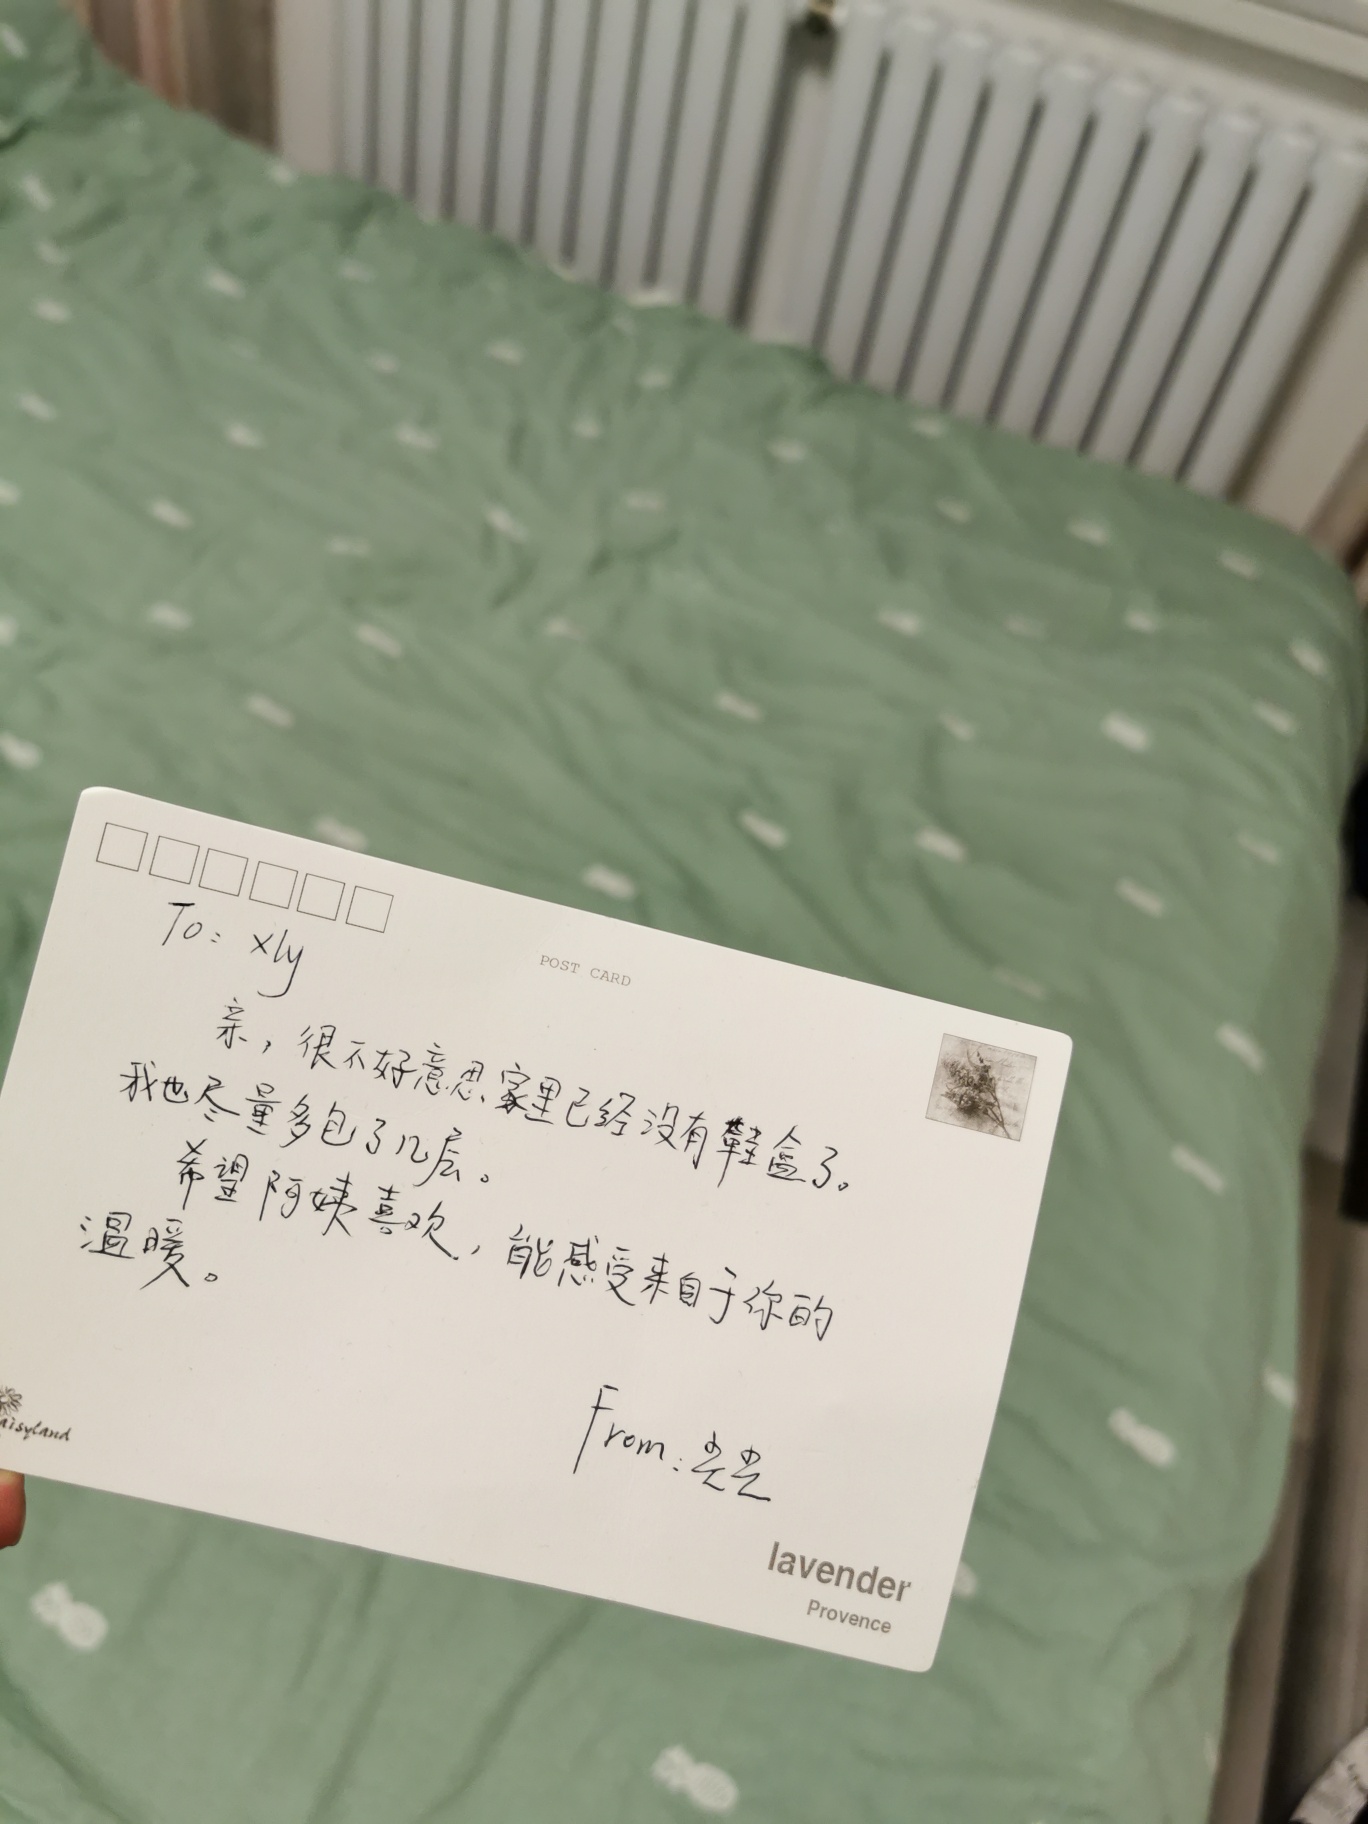 To: xly
POST CARD
亲，很不好意思家里已经没有鞋盒了。
我也尽量多包了几层。
希望阿姨喜欢，能感受来自于你的
温暖。
From:
aisyland
lavender
Provence